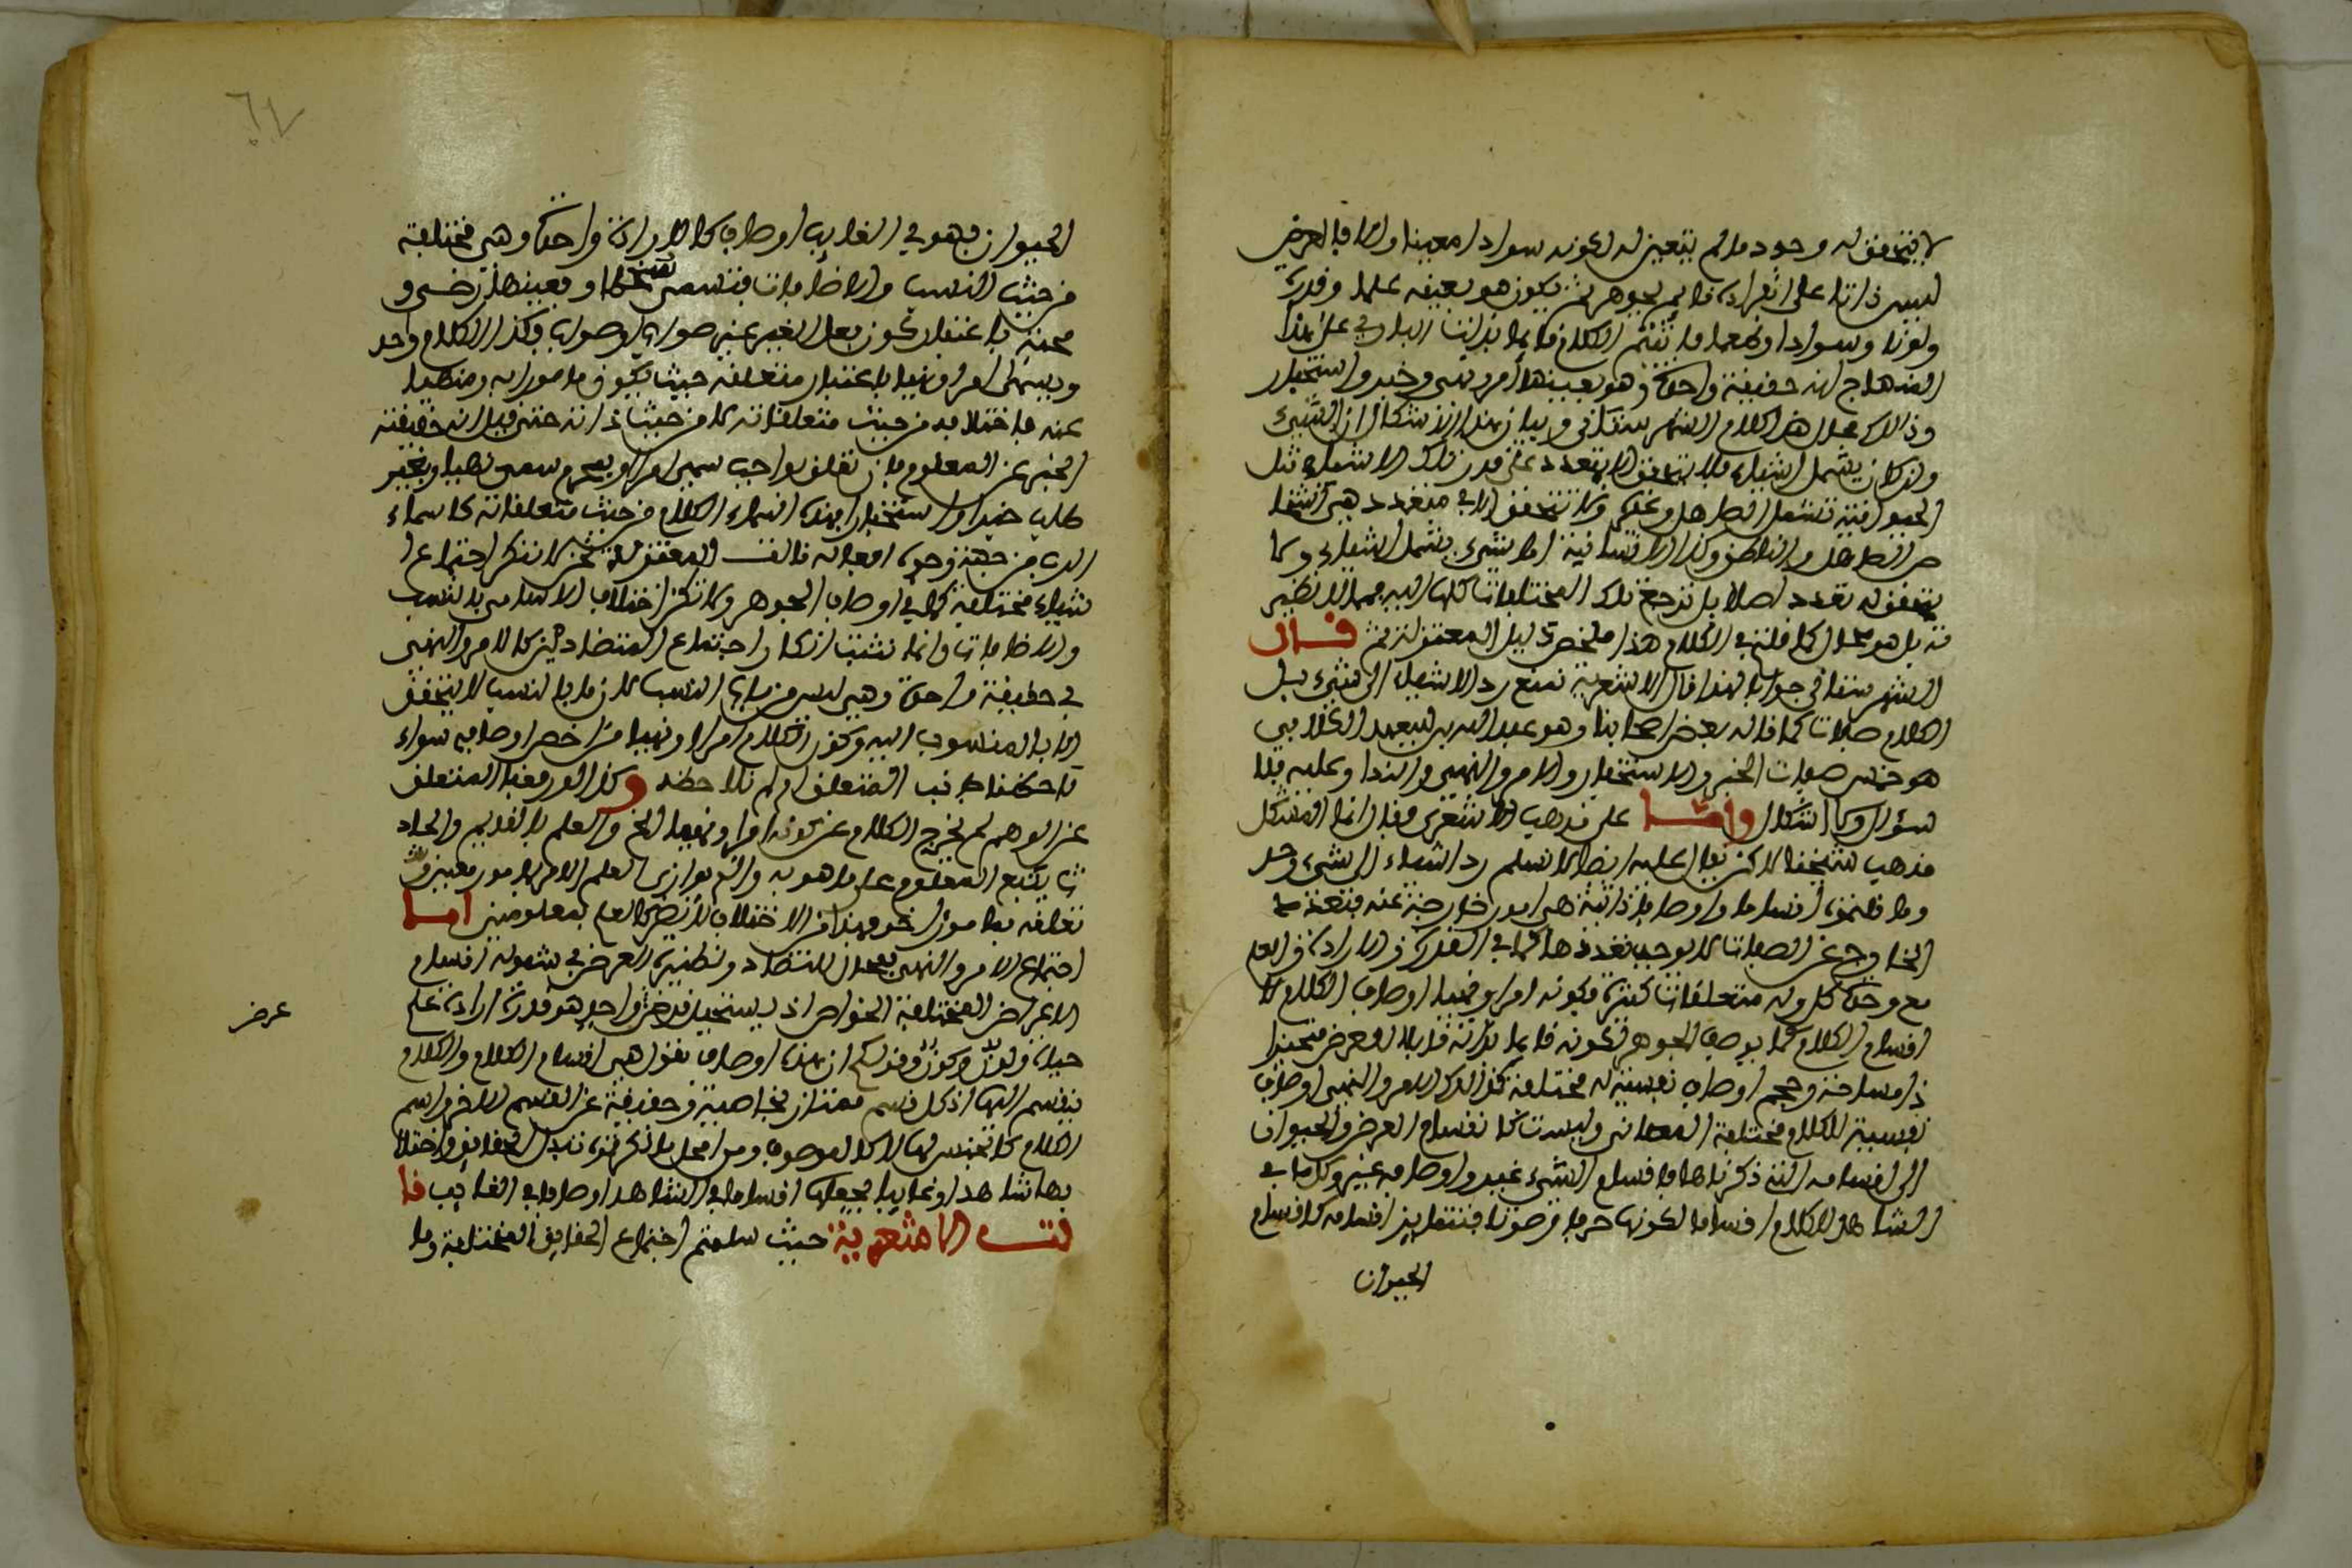 لا يتحقق له وجود ما لم يتعين له لكونه سوادا معينا وايضا فالعرض
ليس ذاتا على انفراده قائم بجوهر ثم يكون هو بعينه علما وقدرة
ولونا وسوادا وطعما فاثبتم الكلام قائما بذات الباري على هذا
المنهاج انه حقيقة واحدة وهو بعينها أمر ونهي وخبر واستخبار
وذلك محال هذا كلام الشهرستاني وبيان هذا الاشكال ان الشيء
وان كان يشمل اشياء فلا يتحقق الا بتعدد على قدر تلك الاشياء مثل
الحيوانية تشمل الصاهل وغيره ولا تتحقق الا في متعدد هي اشخا
ص الصاهل والناطق وكذا الانسانية اما شيء يشمل اشياء ولا
يتحقق له تعدد اصلا بل ترجع تلك المختلفات كلها اليه فمما لا نظير
له بل هو محال كما قلتم في الكلام هذا ملخص دليل المعتزلة ثم قال
الشهرستاني في جواب هذا قال الاشعرية نمنع رد الاشياء الى شيء بل
الكلام صفات كما قاله بعض اصحابنا وهو عبد الله بن سعيد الكلابي
هو خمس صفات الخبر والاستخبار والامر والنهي والندا وعليه فلا
سؤال ولا اشكال وامــا على مذهب الاشعري فقال انما المشكل
مذهب شيخنا لاكن يقال عليه ايضا لا نسلم رد اشياء الى شيء واحد
وما ظنتموه اقساما واوصافا ذاتية هي امور خارجة عنه فتعدد
الخارج عن الصفات لا يوجب تعددها كما في القدرة والارادة والعلم
مع وحدة كل وله متعلقات كثيرة فكونه امرا ونهيا اوصاف الكلام لا
اقسام الكلام كما يوصف الجوهر لكونه قائما بذاته قابلا لعرض متحيزا
ذا مساحة وحجم اوصاف نفسية له مختلفة كذلك الامر والنهي اوصاف
نفسية للكلام مختلفة المعاني وليست كانقسام العرض والحيوان
الى اقسامه التي ذكرناها فاقسام الشيء غير واوصافه غير وكما في
الشاهد للكلام اقساما لكونها حرفا وصوتا فتتغاير اقسامه كاقسام
الحيوان
٦٧
الحيوان فهو في الغايب اوصاف كالارادة واحدة وهي مختلفة
من حيث النسب والاضافات فتسمى سخطا وبعينها رضى و
محبة باعتبار كون فعل الغير عنده صوابا او صواب وكذا الكلام واحد
ويسمى امرا ونهيا باعتبار متعلقه حيث يكون مامورا به ومنهيا
عنه فاختلافه من حيث متعلقاته لا من حيث ذاته حتى قيل ان حقيقته
الخبر عن المعلوم فان تعلق بواجب سمي امرا وبمحرم سمي نهيا وبغير
طلب خبرا واستخبارا فهذه اسماء الكلام من حيث متعلقاته كاسماء
الرب من جهة وجوه افعاله قالت المعتزلة نحن لا ننكر اجتماع ا
شياء مختلفة كما في اوصاف الجوهر ولا ننكر اختلاف الاسامي بالنسب
والاضافات وانما نثبت انكار اجتماع المتضادين كالامر والنهي
في حقيقة واحدة وهي ليس من باب النسب لان ما بالنسب لا يتحقق
الا بالمنسوب اليه وكون الكلام امرا ونهيا من اخص اوصافه سواء
لاحظنا طرف المتعلق او لم نلاحظه ولو رفعنا المتعلق
عن الوهم لم يخرج الكلام عن كونه امرا ونهيا الخ والعلم بالقديم والحاد
ث يتبع المعلوم على ما هو به
تعلقه فما سواء اخر فهذا من الاختلاف لا يضر كالعلم بمعلومين امــا
اجتماع الامر والنهي فمحال للتضاد ونظيره العرض في شموله اقسام
الاعراض المختلفة الخواص اذ يستحيل عرض واحد هو قدرة ارادة علم
عرض
حياة ولون وكون وقولكم ان هذه اوصاف نقول هي اقسام الكلام والكلام
ينقسم اليها اذ كل قسم ممتاز بخاصية وحقيقة عن القسم الاخر واسم
الكلام كالجنس لها لا كالموصوف ومن المحال ما ذكرتموه تبدل الحقائق واختلا
فها شاهدا وغايبا بجعلها اقساما في الشاهد اوصافا في الغايب قا
لت الاشعرية حيث سلمتم اجتماع الحقايق المختلفة وما